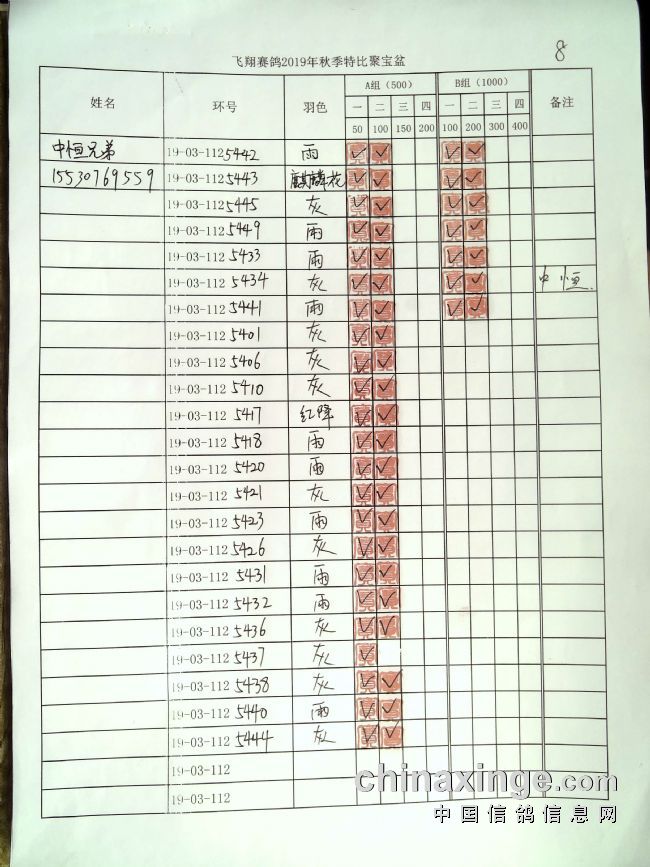 8
飞翔赛鸽2019年秋季特比聚宝盆
姓名 环号 羽色 A组（500） B组（1000） 备注
一 二 三 四 一 二 三 四
50 100 150 200 100 200 300 400
中恒兄弟 19-03-112 5442 雨 ✓ ✓ ✓ ✓
15530769559 19-03-112 5443 麒麟花 ✓ ✓ ✓ ✓
19-03-112 5445 灰 ✓ ✓ ✓ ✓
19-03-112 5449 雨 ✓ ✓ ✓ ✓
19-03-112 5433 雨 ✓ ✓ ✓ ✓
19-03-112 5434 灰 ✓ ✓ ✓ ✓ 中恒.
19-03-112 5441 雨 ✓ ✓ ✓ ✓
19-03-112 5401 灰 ✓ ✓
19-03-112 5406 灰 ✓ ✓
19-03-112 5410 灰 ✓ ✓
19-03-112 5417 红降 ✓ ✓
19-03-112 5418 雨 ✓ ✓
19-03-112 5420 雨 ✓ ✓
19-03-112 5421 灰 ✓ ✓
19-03-112 5423 雨 ✓ ✓
19-03-112 5426 灰 ✓ ✓
19-03-112 5431 雨 ✓ ✓
19-03-112 5432 雨 ✓ ✓
19-03-112 5436 灰 ✓ ✓
19-03-112 5437 灰 ✓
19-03-112 5438 灰 ✓ ✓
19-03-112 5440 雨 ✓ ✓
19-03-112 5444 灰 ✓ ✓
19-03-112
19-03-112
chinaxinge.com
中国信鸽信息网